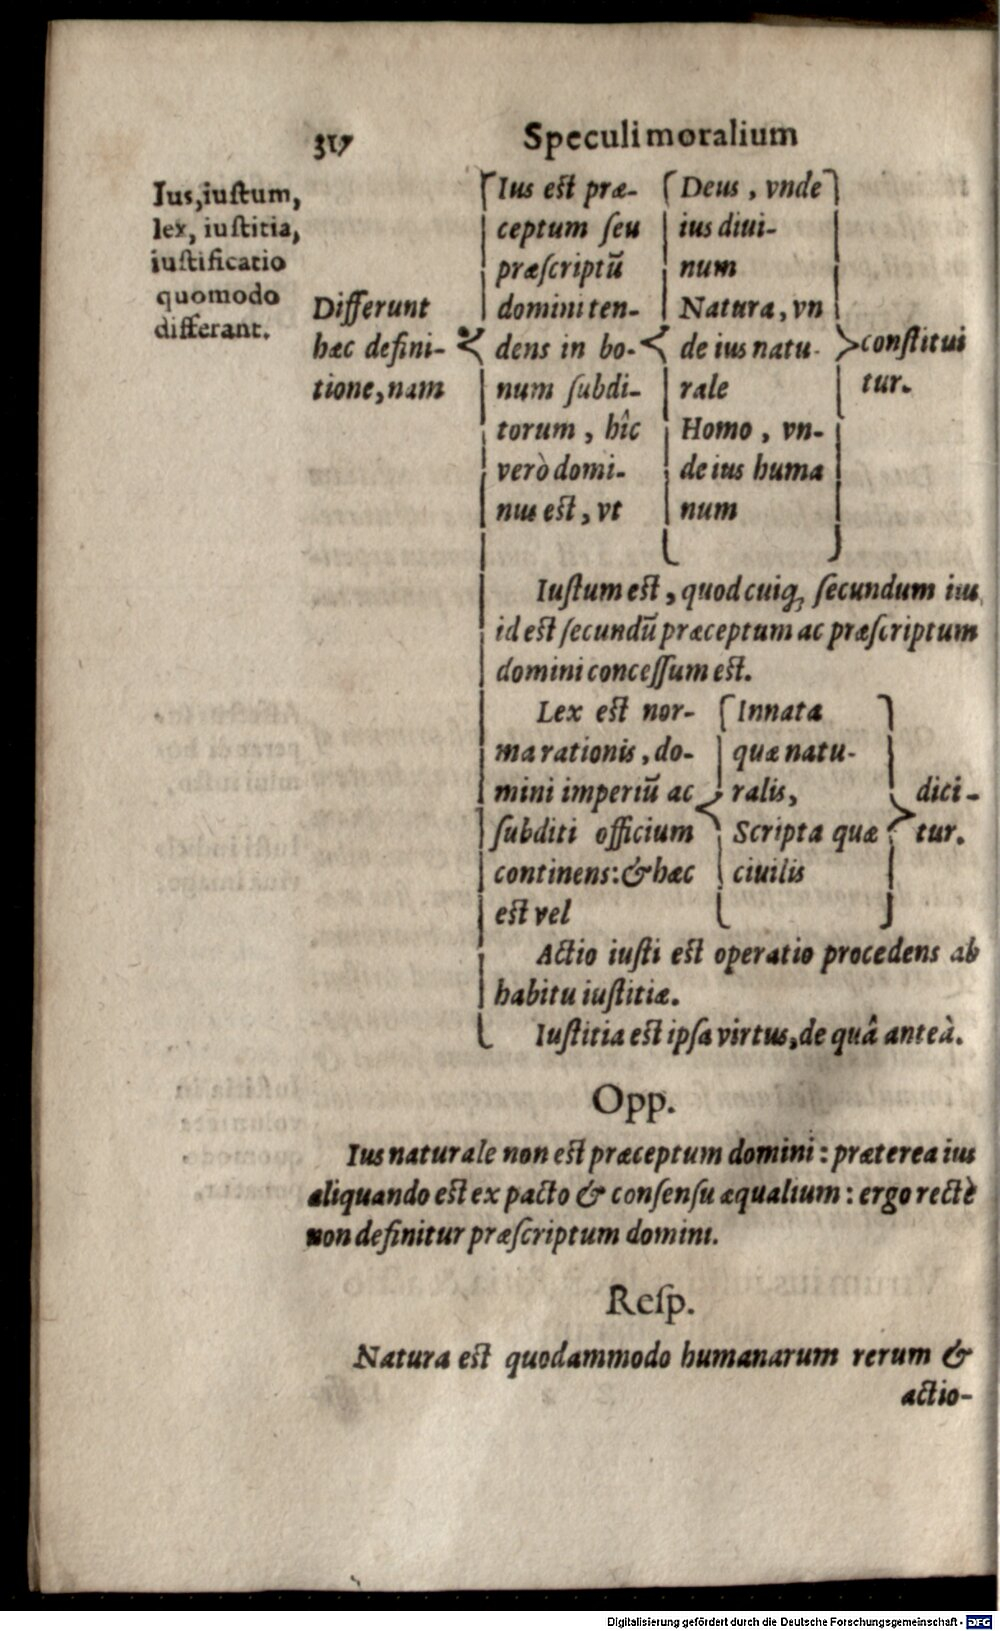 317
Speculi moralium
Ius, iustum,
lex, iustitia,
iustificatio
quomodo
differant.
Differunt
hæc defini-
tione, nam
Ius est præ-
ceptum ſeu
præſcriptū
domini ten-
dens in bo-
num ſubdi-
torum, hîc
verò domi-
nus est, vt
Deus, vnde
ius diui-
num
Natura, vn
de ius natu-
rale
Homo, vn-
de ius huma
num
conſtitui
tur.
Iuſtum est, quod cuiq; ſecundum ius
id est ſecundū præceptum ac præſcriptum
domini conceſſum est.
Lex est nor-
ma rationis, do-
mini imperiū ac
ſubditi officium
continens: & hæc
est vel
Innata
quæ natu-
ralis,
Scripta quæ
ciuilis
dici-
tur.
Actio iuſti est operatio procedens ab
habitu iuſtitiæ.
Iuſtitia est ipſa virtus, de quâ anteà.
Opp.
Ius naturale non est præceptum domini: præterea ius
aliquando est ex pacto & conſenſu æqualium: ergo rectè
non definitur præſcriptum domini.
Reſp.
Natura est quodammodo humanarum rerum &
actio-
Digitalisierung gefördert durch die Deutsche Forschungsgemeinschaft - DFG